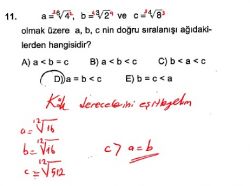 11. a = ³√4, b = ⁶√2 ve c = ⁴√8
olmak üzere a, b, c nin doğru sıralanışı ağıdaki-
lerden hangisidir?
A) a < b = c B) b < a < c C) b < a < c
D) a = b < c E) b = c < a
Kök derecelerini eşitleyelim
a = ¹²√16
b = ¹²√16
c = ¹²√512
c > a = b